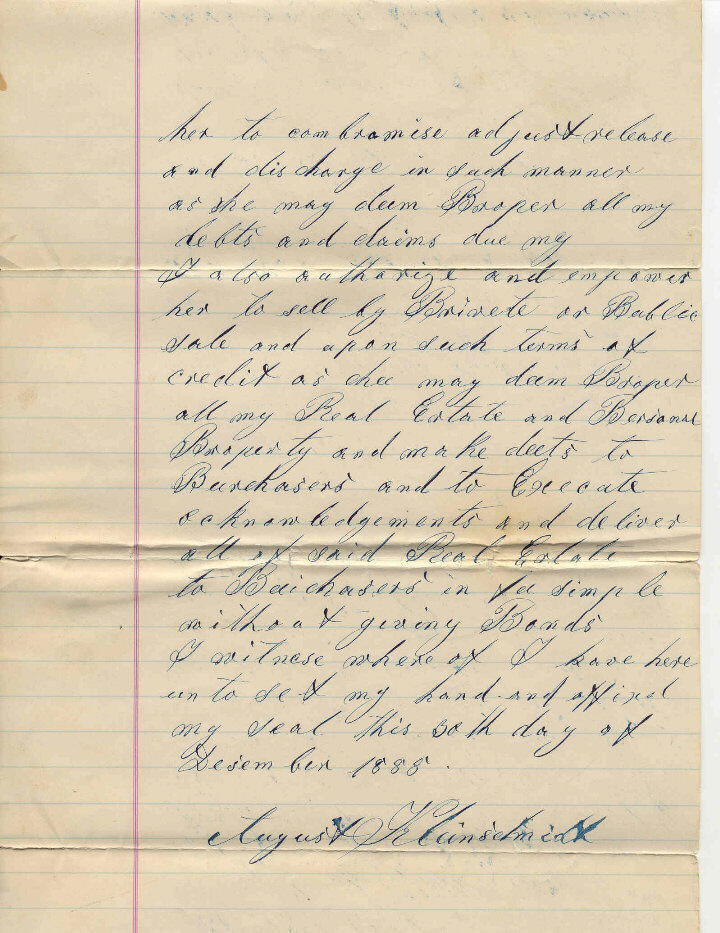 her to combromise adjust release
and discharge in such manner
as she may deem Broper all my
debts and claims due my
I also authorize and empower
her to sell by Brivete or Bublic
sale and upon such terms of
credit as chee may deem Broper
all my Real Estate and Bersonal
Broperty and make deets to
Burchasers and to Execute
acknowledgements and deliver
all of said Real Estate
to Buichasers in fee simple
without giving Bonds
I witnese where of I have here
unto set my hand and affixd
my seal this 30th day of
Desember 1888.
August Kleinschmidt